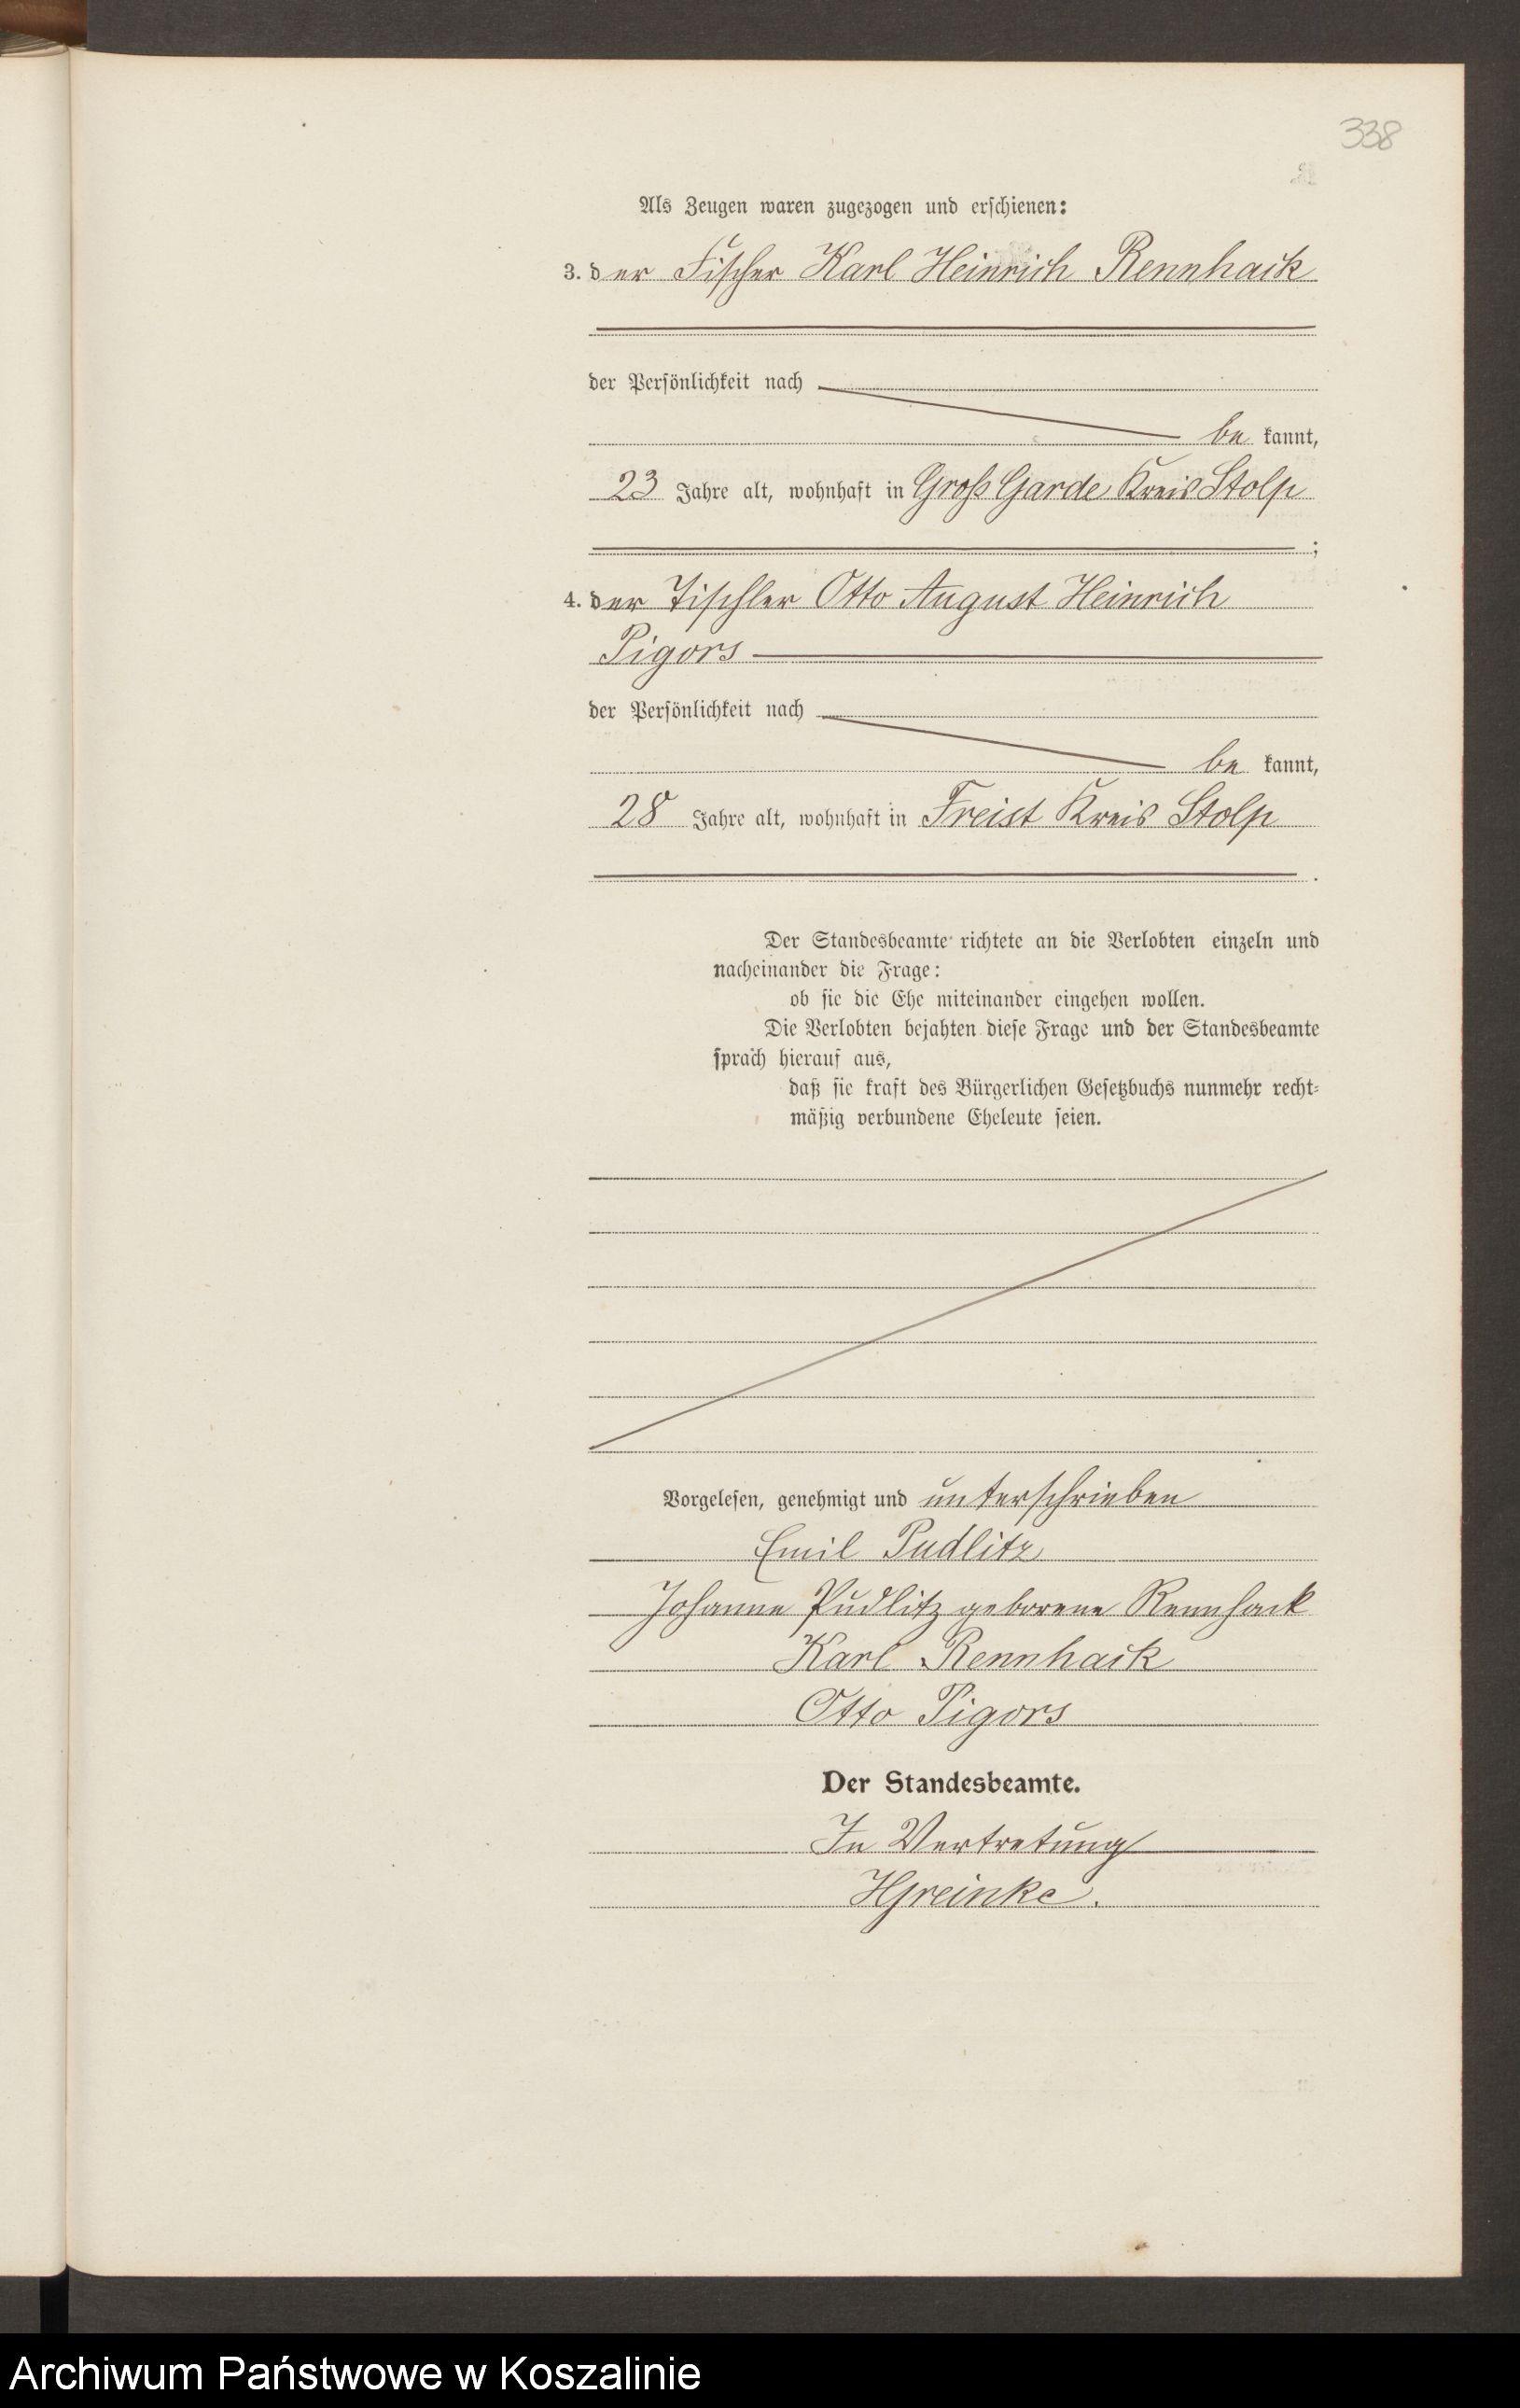 338
Als Zeugen waren zugezogen und erschienen:
3. der Fischer Karl Heinrich Rennhack
der Persönlichkeit nach
be kannt,
23 Jahre alt, wohnhaft in Groß Garde Kreis Stolp
;
4. der Tischler Otto August Heinrich
Pigors
der Persönlichkeit nach
be kannt,
28 Jahre alt, wohnhaft in Freist Kreis Stolp
.
Der Standesbeamte richtete an die Verlobten einzeln und
nacheinander die Frage:
ob sie die Ehe miteinander eingehen wollen.
Die Verlobten bejahten diese Frage und der Standesbeamte
sprach hierauf aus,
daß sie kraft des Bürgerlichen Gesetzbuchs nunmehr recht-
mäßig verbundene Eheleute seien.
Vorgelesen, genehmigt und unterschrieben
Emil Pudlitz
Johanne Pudlitz geborene Rennhack
Karl Rennhack
Otto Pigors
Der Standesbeamte.
In Vertretung
HGreinke.
Archiwum Państwowe w Koszalinie